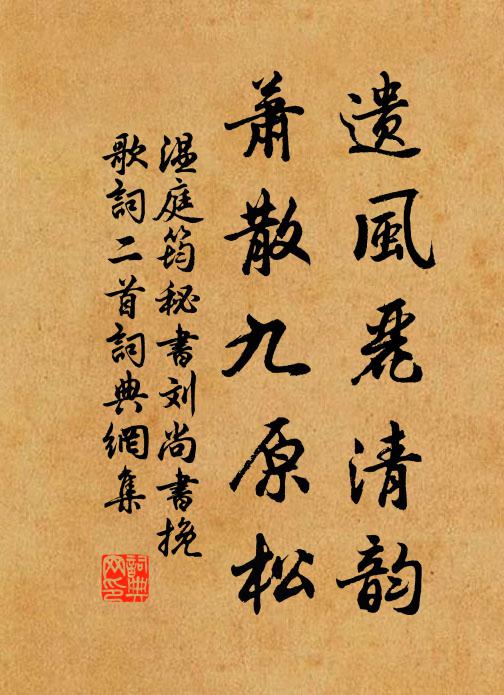 遺風麗清韵
蕭散九原松
温庭筠秘書刘尚書挽
歌詞二首詞典網集
詞典
网印